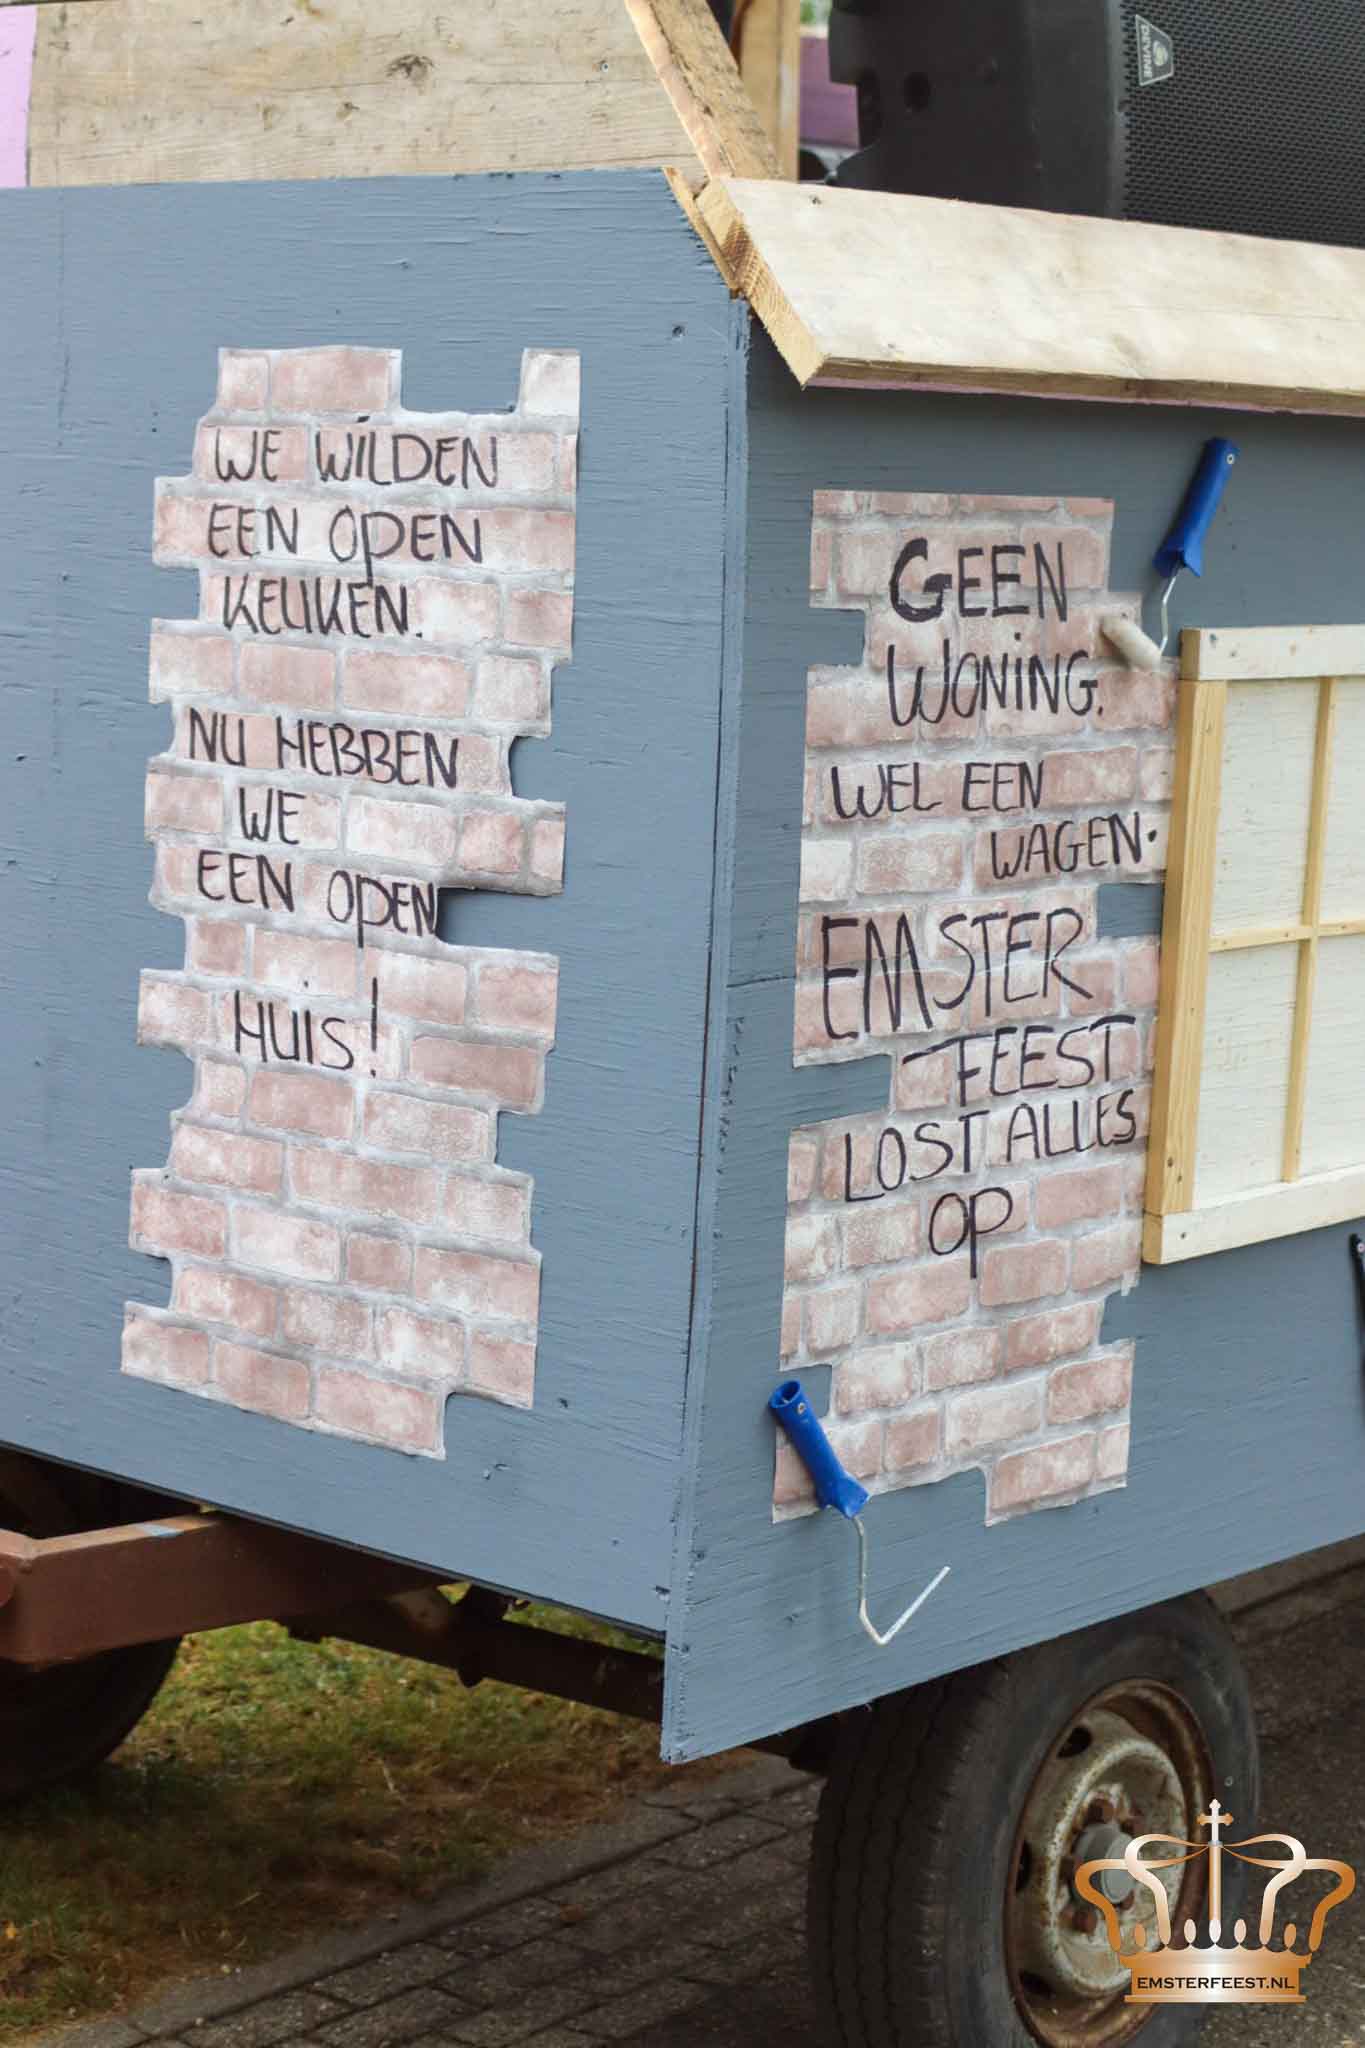 DIVINE
WE WILDEN
EEN OPEN
KEUKEN.
NU HEBBEN
WE
EEN OPEN
HUIS!
GEEN
WONING.
WEL EEN
WAGEN.
EMSTER
-FEEST
LOST ALLES
OP
EMSTERFEEST.NL